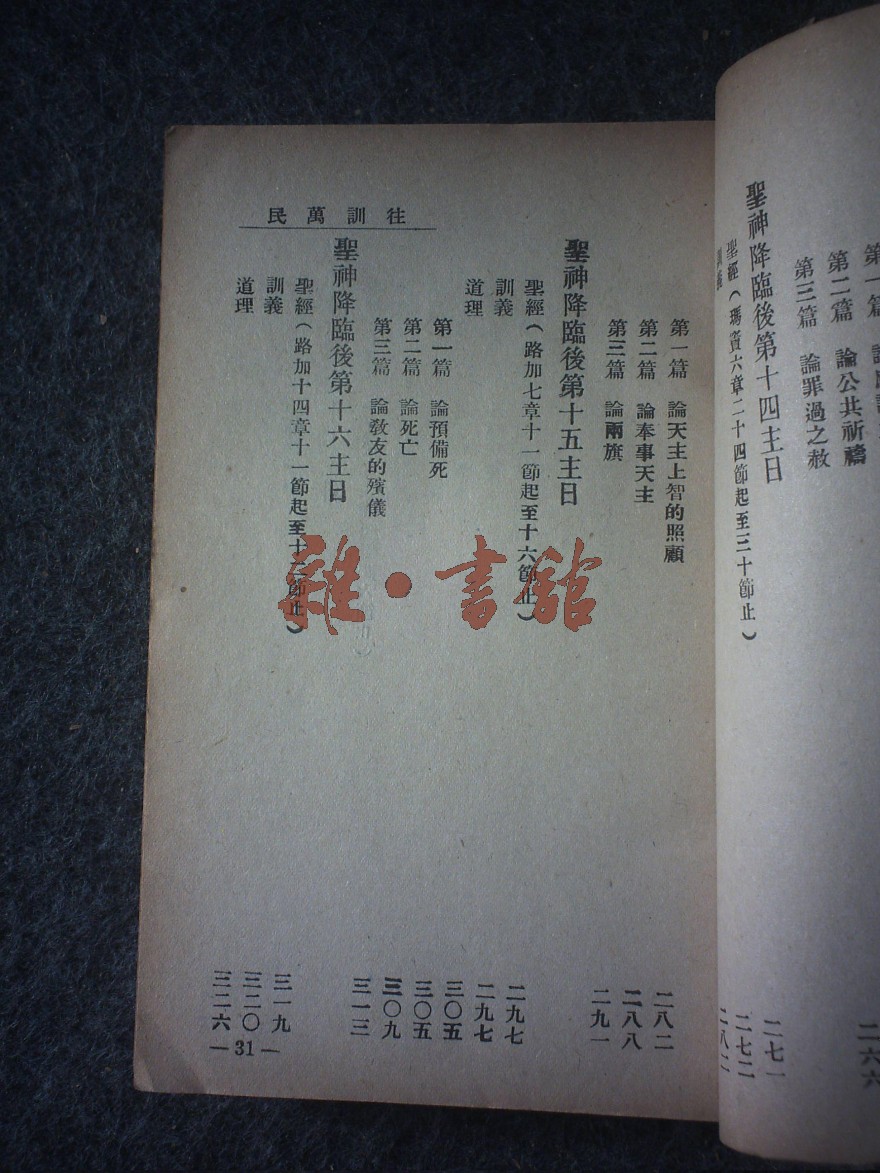 第一篇
第二篇 論公共祈禱
第三篇 論罪過之赦 二六六
聖神降臨後第十四主日
聖經(瑪竇六章二十四節起至三十節止) 二七一
訓義 二七二
二八二
往訓萬民
第一篇 論天主上智的照顧 二八二
第二篇 論奉事天主 二八八
第三篇 論兩旗 二九一
聖神降臨後第十五主日
聖經(路加七章十一節起至十六節止) 二九七
訓義 二九七
道理 三〇五
第一篇 論預備死 三〇五
第二篇 論死亡 三〇九
第三篇 論敎友的殯儀 三一三
聖神降臨後第十六主日
聖經(路加十四章十一節起至十一節止) 三一九
訓義 三二〇
道理 三二六
— 31 —
雜·書館